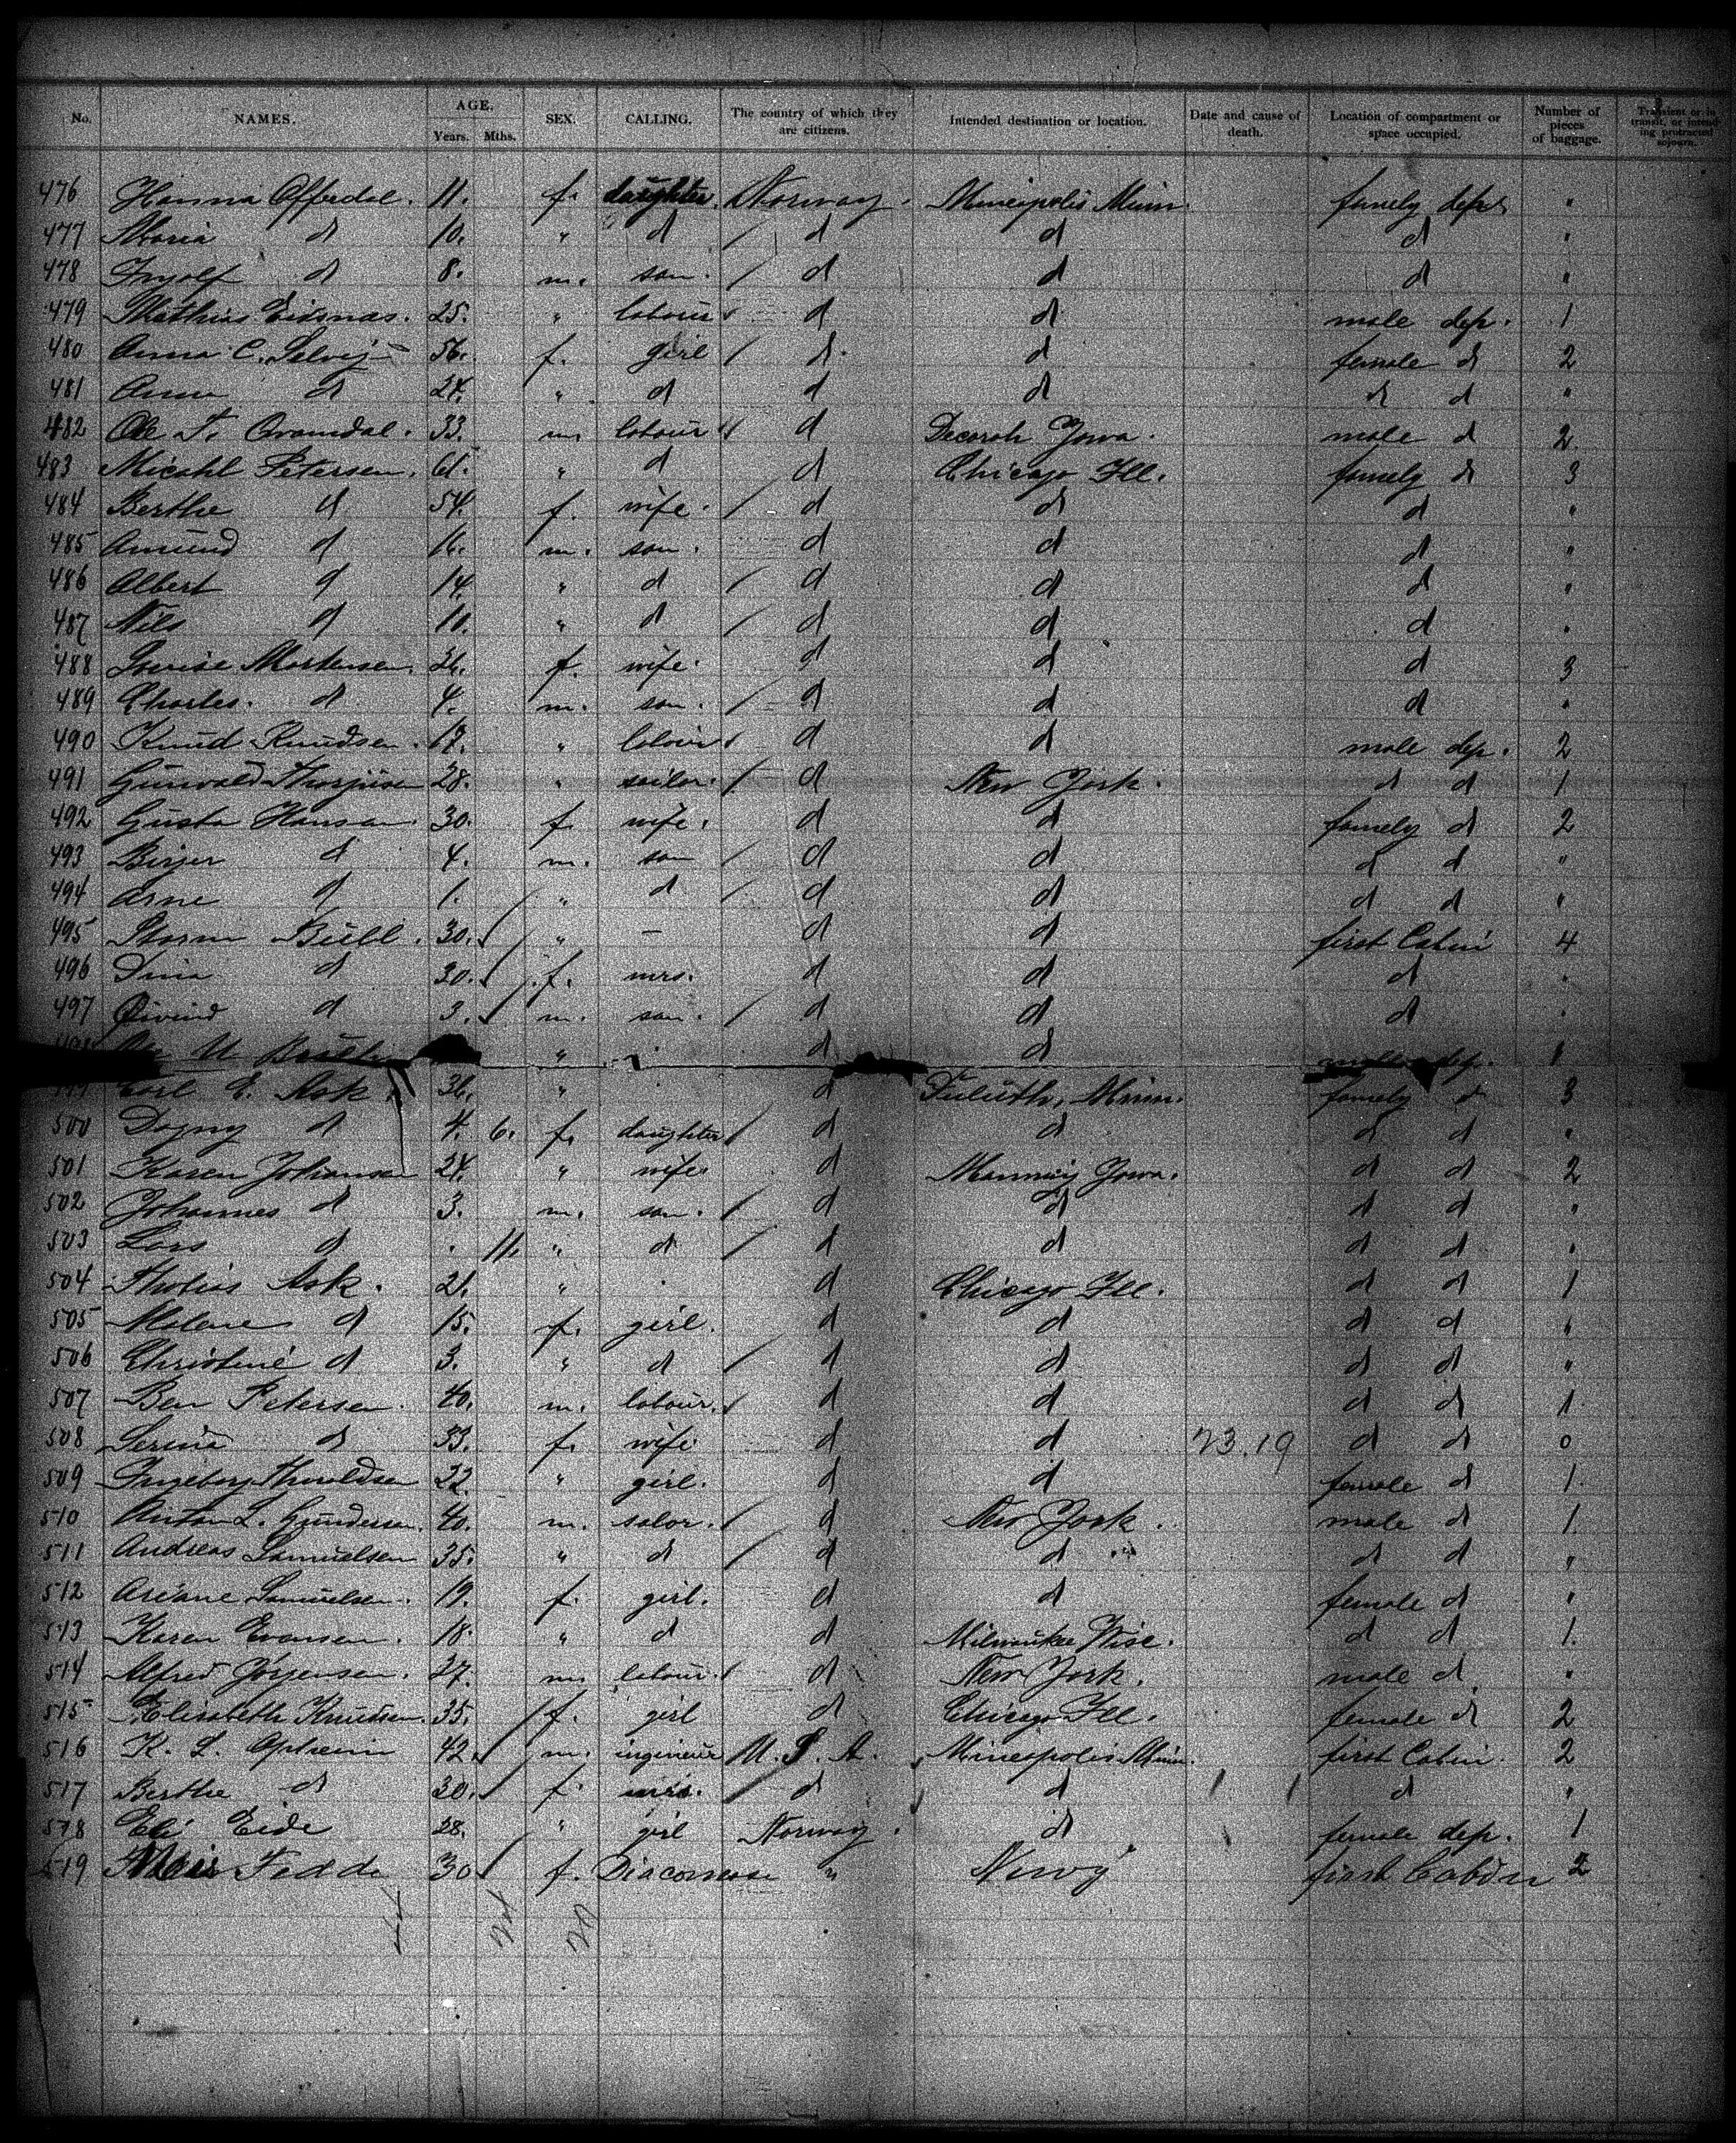 No. NAMES. AGE. Years. Mths. SEX. CALLING. The country of which they are citizens. Intended destination or location. Date and cause of death. Location of compartment or space occupied. Number of pieces of baggage. Transient or in transit, or intending protracted sojourn.
476 Hanna Offerdal. 11. f. daughter. Norway. Mineapolis Minn. famely dep. "
477 Maria d 10. " d d d d "
478 Ingolf d 8. m. son. d d d "
479 Mathias Eidsnas. 25. " labour d d male dep. 1
480 Anna C. 56. f. girl d. d female d 2
481 Anna d 24. " d d d d d "
482 Ole T. 33. m. labour d Decorah Jowa. male d 2
483 Micahl Petersen. 61. " d d Chicago Ill. famely d 3
484 Berthe d 54. f. wife. d d d "
485 Amund d 16. m. son. d d d "
486 Albert d 14. " d d d d "
487 Nils d 10. " d d d d "
488 Lovise Mortensen. 26. f. wife. d d d 3
489 Charles. d 4. m. son. d d d "
490 Knud Knudsen. 17. " labour d d male dep. 2
491 Gunvald 28. " sailor. d New York. d d 1
492 Gusta Hansen. 30. f. wife. d d famely d 2
493 Birger d 4. m. son d d d d "
494 Arne d 1. " d d d d d "
495 Storm Bull. 30. " – d d first Cabin 4
496 Dina d 30. f. mrs. d d d "
497 Öivind d 3. m. son. d d d "
498 " d d male dep.
499 Carl E. Ask. 36. " d Duluth, Minn. famely d 3
500 Dagny d 4. 6. f. daughter d d d d "
501 Karen Johansen 24. " wife d Manning Jowa. d d 2
502 Johannes d 3. m. son. d d d d "
503 Lars d . 11. " d d d d d "
504 Tholias Ask. 21. " . d Chicago Ill. d d 1
505 Malene d 15. f. girl. d d d d "
506 Christine d 3. " d d d d d "
507 Ben Petersen. 40. m. labour. d d d d 1
508 Serine d 33. f. wife d d 23.19 d d 0
509 Ingeborg Thoraldsen 22. " girl. d d female d 1.
510 Anton L. Gundersen. 40. m. salor. d New York. male d 1.
511 Andreas Samuelsen 35. " d d d d d "
512 Ariane Samuelsen. 19. f. girl. d d female d "
513 Karen Evensen. 18. " d d Milwaukee Wisc. d d 1.
514 Alfred Jörgensen. 27. m. labour. d New York. male d "
515 Elisabeth Knudsen. 35. f. girl d Chicago Ill. female d 2
516 K. L. 42. m. ingineur U. S. A. Mineapolis Minn. first Cabin. 2
517 Berthe d 30. f. mrs. d d d "
518 Eli Eide 28. " girl Norway. d female dep. 1
519 Fedde 30 f. Diaconesse " first Cabin 2